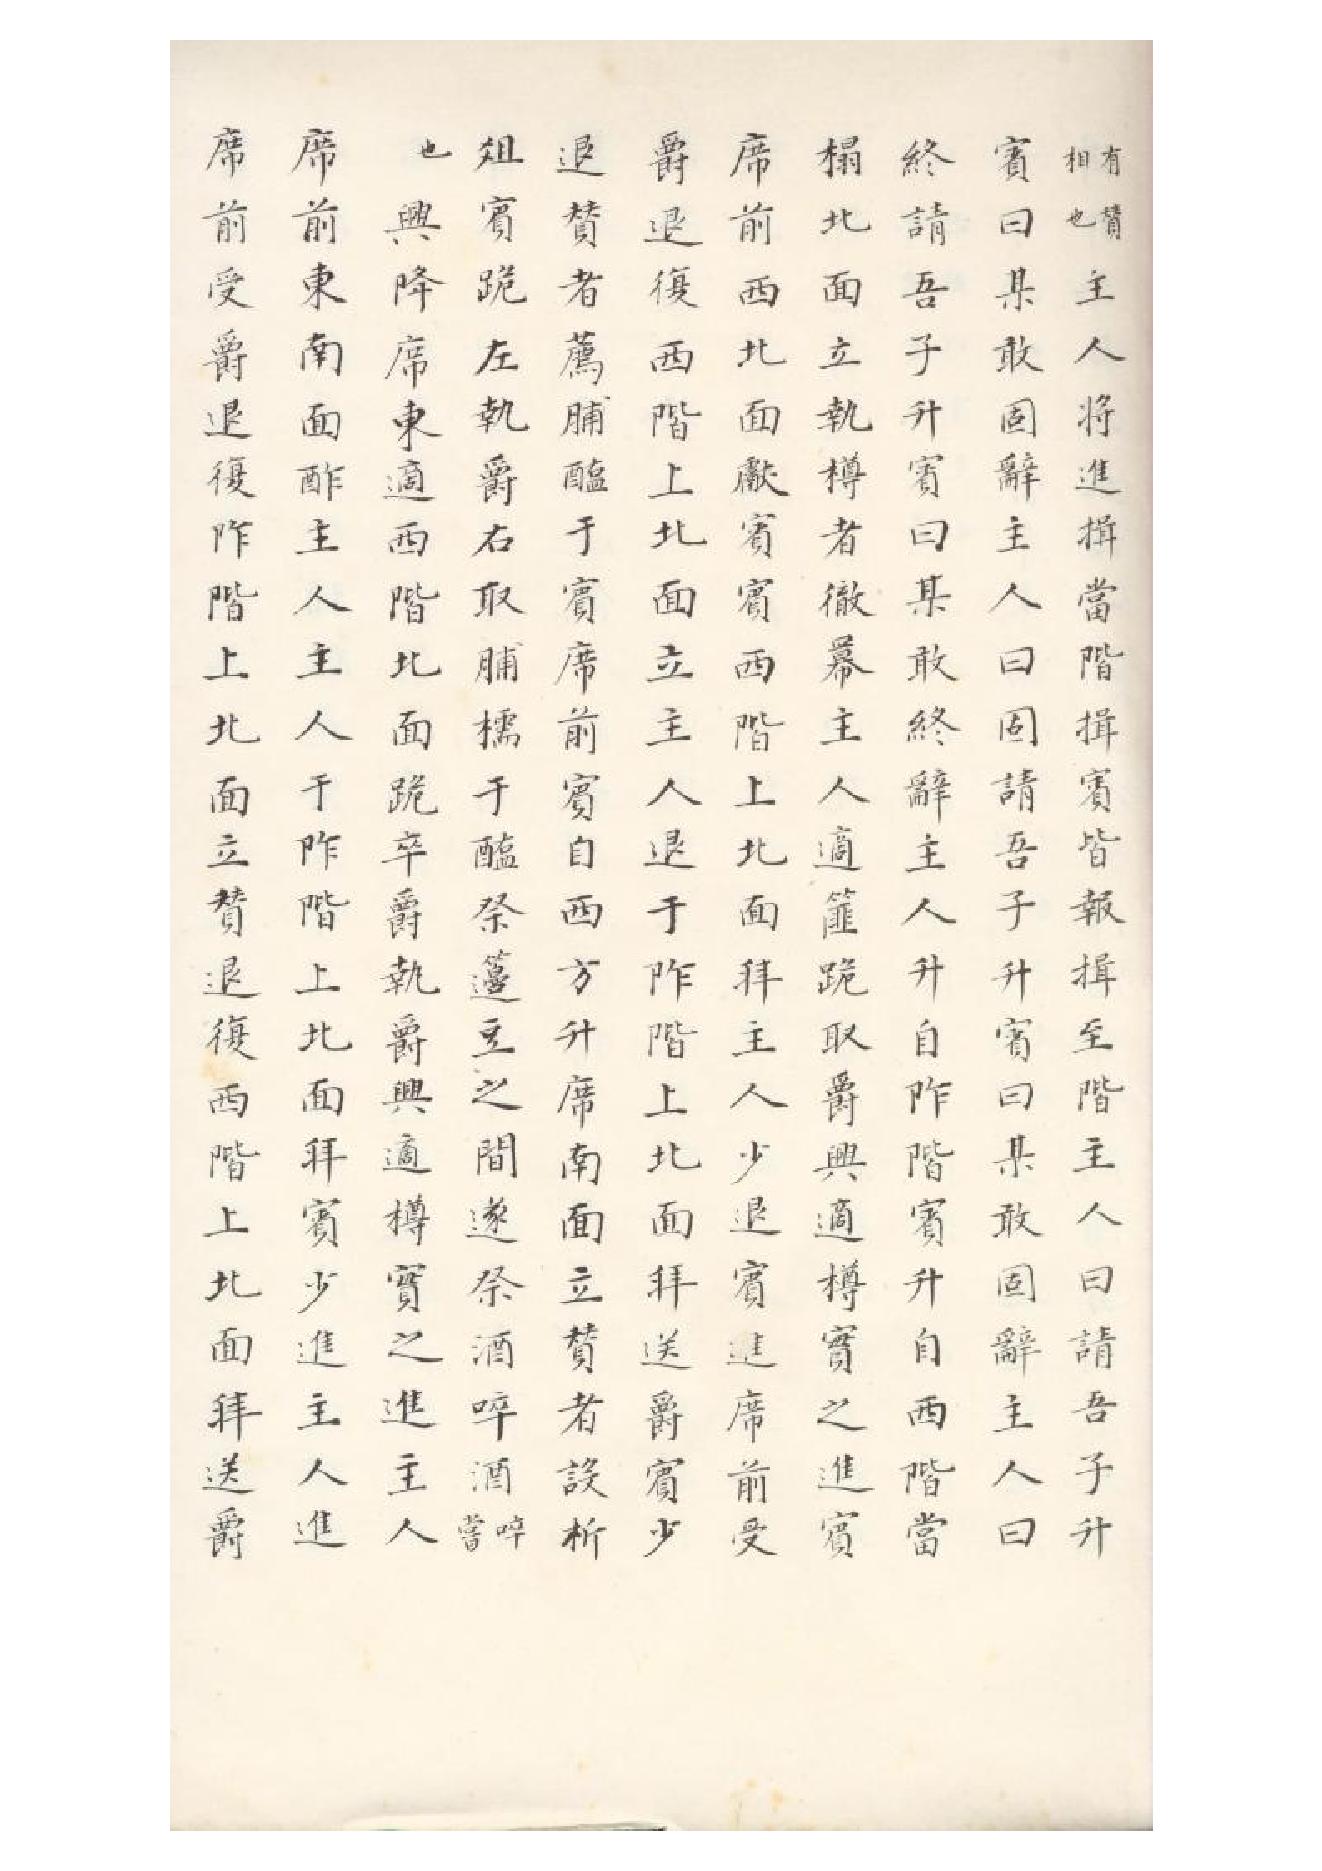 有贊相也主人將進揖當階揖賓皆報揖至階主人曰請吾子升
賓曰某敢固辭主人曰固請吾子升賓曰某敢固辭主人曰
終請吾子升賓曰某敢終辭主人升自阼階賓升自西階當
榻北面立執樽者徹冪主人適篚跪取爵興適樽實之進賓
席前西北面獻賓賓西階上北面拜主人少退賓進席前受
爵退復西階上北面立主人退于阼階上北面拜送爵賓少
退贊者薦脯醢于賓席前賓自西方升席南面立贊者設析
俎賓跪左執爵右取脯擩于醢祭籩豆之間遂祭酒啐酒啐嘗
也興降席東適西階北面跪卒爵執爵興適樽實之進主人
席前東南面酢主人主人于阼階上北面拜賓少進主人進
席前受爵退復阼階上北面立賛退復西階上北面拜送爵